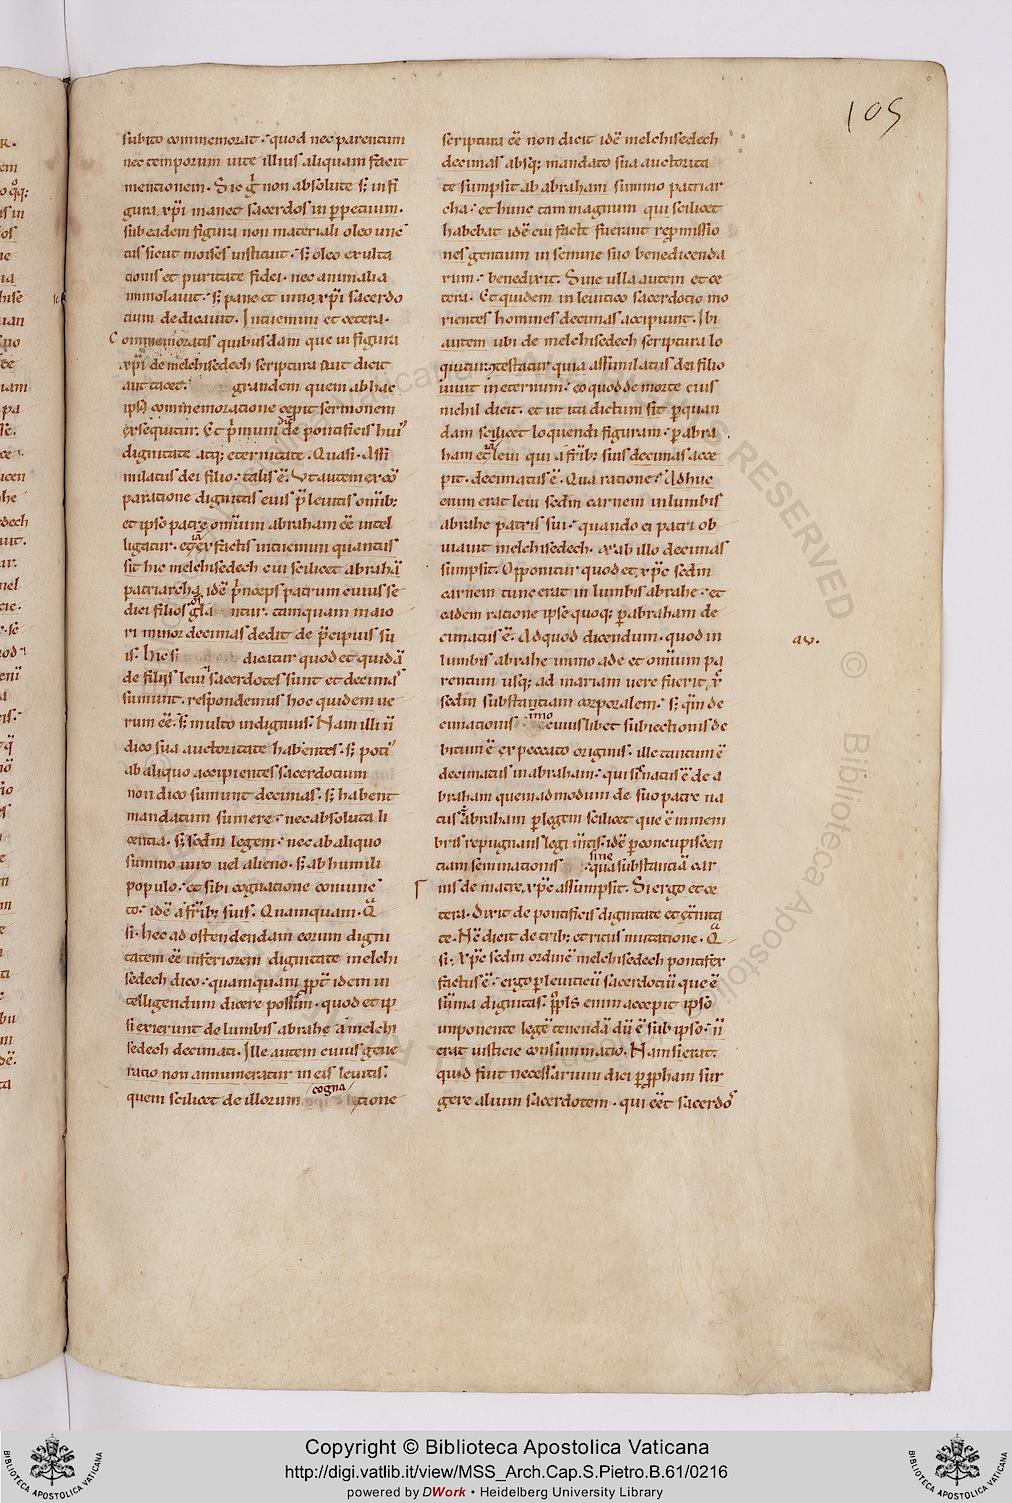 105
subito commemorat. quod nec parentum
nec temporum vite illius aliquam facit
mentionem. Sic g̾ non absolute s; in fi
gura xp̄i manet sacerdos in ꝑpetuum.
sub eadem figura non materiali oleo unc
tus sicut moises instituit. s; oleo exulta
tionis et puritate fidei. nec animalia
immolavit. s; pane et vino xp̄i sacerdo
tium dedicavit. Intuemini et cetera.
Commemoratis quibusdam que in figura
xp̄i de melchisedech scriptura aut dicit
aut tacet. grandem quem ab hac
commemoratione cepit sermonem
exsequitur. Et primum de pontificis hui'
dignitate atq; eternitate. Quasi. Assi
milatus dei filio. talis ē. Ut autem ex cō
paratione dignitatis eius p̄ levitis omīb;
et ipso patre omīum abraham eē intel
ligatur. ex factis intuemini quantus
sit hic melchisedech cui scilicet abrahā
patriarcha idē princeps patrum cuius se
dici filios gla ntur. tamquam maio
ri minor decimas dedit de p̄cipuis su
is. hic si dicatur quod et quidā
de filiis levi sacerdotes sunt et decimas
sumunt. respondemus hoc quidem ve
rum eē. s; multo indignius. Nam illi n̄
dico sua auctoritate habentes. s; poti'
ab aliquo accipientes sacerdotium
non dico sumunt decimas. s; habent
mandatum sumere. nec absoluta li
centia. s; secdm legem. nec ab aliquo
summo viro vel alieno. s; ab humili
populo. et sibi cognatione coniunc
to. idē a frīb; suis. Quamquam. Q
si. hec ad ostendendam eorum digni
tatem eē inferiorem dignitate melchi
sedech dico. quamquam idem in
telligendum dicere possim. quod et ip
si exierunt de lumbis abrahe a melchi
sedech decimati. Ille autem cuius gene
ratio non annumeratur in eis levitis.
quem scilicet de illorum cognatione
scriptura eē non dicit idē melchisedech
decimas absq; mandato sua auctorita
te sumpsit ab abraham summo patriar
cha. et hunc tam magnum qui scilicet
habebat idē cui facte fuerant repromissio
nes gentium in semine suo benedicenda
rum. benedixit. Sine ulla autem et ce
tera. Et quidem in levitico sacerdotio mo
rientes homines decimas accipiunt. Ibi
autem ubi de melchisedech scriptura lo
quitur contestatur quia assimilatus dei filio
vivit in eternum. eo quod de morte eius
nichil dicit. et ut ita dictum sit ꝑ quan
dam scilicet loquendi figuram. ꝑ abra
ham et levi qui a frīb; suis decimas acce
pit. decimatus ē. Qua ratione. Adhuc
enim erat levi secdm carnem in lumbis
abrahe patris sui. quando ei patri ob
viavit melchisedech. et ab illo decimas
sumpsit. Opponitur quod et xp̄c secdm
carnem tunc erat in lumbis abrahe. et
eadem ratione ipse quoq; ꝑ abraham de
cimatus ē. Ad quod dicendum. quod in
av.
lumbis abrahe immo ade et omīum pa
rentum usq; ad mariam vere fuerit xp̄c
secdm substantiam corporalem. s; qm̄ de
cimationis immo cuiuslibet subiectionis de
bitum ē ex peccato originis. ille tantum ē
decimatus in abraham. qui sic natus ē de a
braham quemadmodum de suo patre na
tus ē abraham ꝑ legem scilicet que ē in mem
bris repugnans legi mentis. idē ꝑ concupiscen
tiam seminationis. sine qua substantiā car
nis de matre xp̄c assumpsit. Si ergo et ce
tera. Dixit de pontificis dignitate et eternita
te. Nc̄ dicit de trib; et ritus mutatione. Q
si. xp̄c secdm ordinē melchisedech pontifex
factus ē. ergo ꝑ leviticū sacerdotiū que ē
sūma dignitas. ppl̄s enim accepit ipso
imponente legē tenendā dū ē sub ipso. n̄
erat iusticie consummatio. Nam si erat.
quid fuit necessarium dici ꝑ ꝓpham sur
gere alium sacerdotem. qui eēt sacerdos